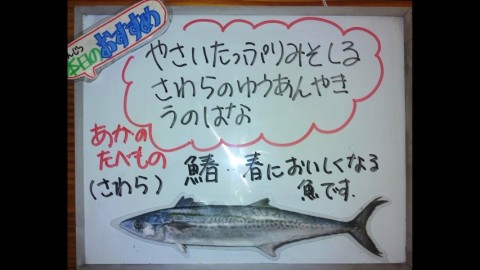 本日のおすすめ
やさいたっぷりみそしる
さわらのゆうあんやき
うのはな
あかの
たべもの
(さわら)
鰆・春においしくなる
魚です.